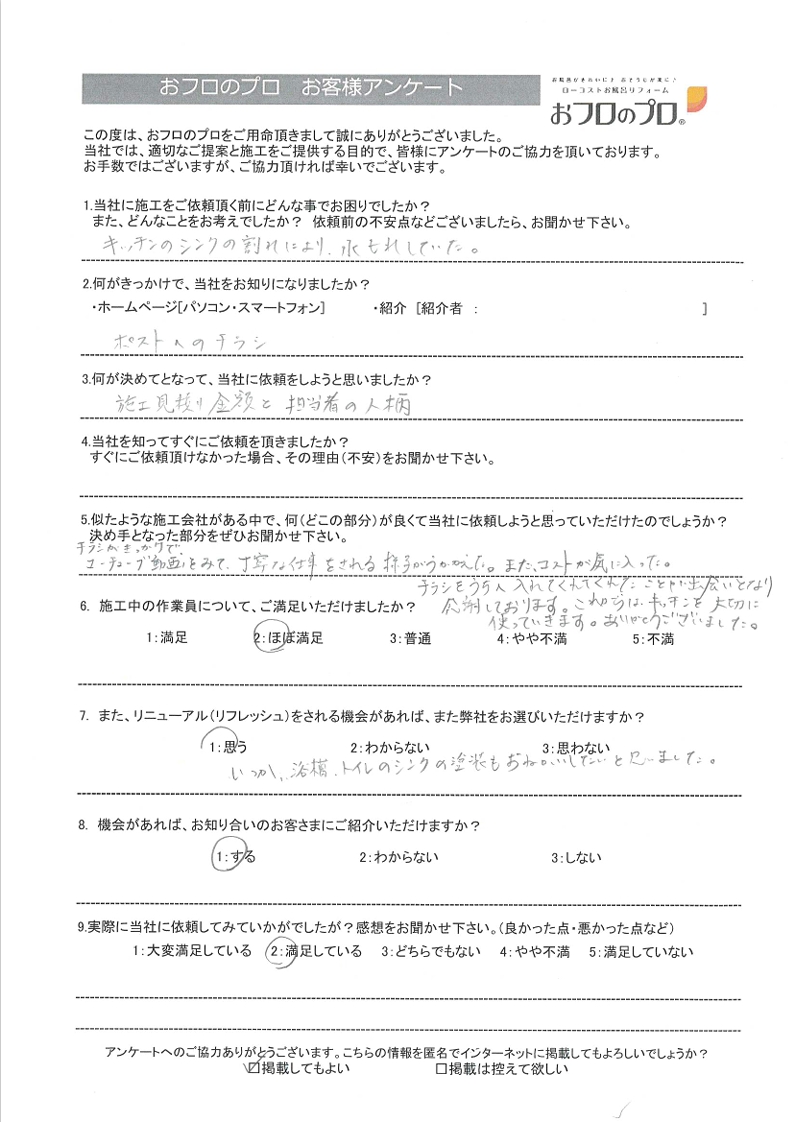 おフロのプロ お客様アンケート
お風呂がきれいに♪ おそうじが楽に♪
ローコストお風呂リフォーム
おフロのプロ®
この度は、おフロのプロをご用命頂きまして誠にありがとうございました。
当社では、適切なご提案と施工をご提供する目的で、皆様にアンケートのご協力を頂いております。
お手数ではございますが、ご協力頂ければ幸いでございます。
1.当社に施工をご依頼頂く前にどんな事でお困りでしたか?
また、どんなことをお考えでしたか? 依頼前の不安点などございましたら、お聞かせ下さい。
キッチンのシンクの割れにより、水もれしていた。
2.何がきっかけで、当社をお知りになりましたか?
・ホームページ[パソコン・スマートフォン] ・紹介 [紹介者 : ]
ポストへのチラシ
3.何が決めてとなって、当社に依頼をしようと思いましたか?
施工見積り金額と担当者の人柄
4.当社を知ってすぐにご依頼を頂きましたか?
すぐにご依頼頂けなかった場合、その理由(不安)をお聞かせ下さい。
5.似たような施工会社がある中で、何(どこの部分)が良くて当社に依頼しようと思っていただけたのでしょうか?
決め手となった部分をぜひお聞かせ下さい。
チラシがきっかけで、
ユーチューブ動画をみて、丁寧な仕事をされる様子がうかがえた。また、コストが気に入った。
チラシをうちへ入れてくれてくれたことが出会いとなり
6. 施工中の作業員について、ご満足いただけましたか?
感謝しております。これからはキッチンを大切に
使っていきます。ありがとうございました。
1:満足 2:ほぼ満足 3:普通 4:やや不満 5:不満
7. また、リニューアル(リフレッシュ)をされる機会があれば、また弊社をお選びいただけますか?
1:思う 2:わからない 3:思わない
いつか、浴槽、トイレのシンクの塗装もおねがいしたいと思いました。
8. 機会があれば、お知り合いのお客さまにご紹介いただけますか?
1:する 2:わからない 3:しない
9.実際に当社に依頼してみていかがでしたが?感想をお聞かせ下さい。(良かった点・悪かった点など)
1:大変満足している 2:満足している 3:どちらでもない 4:やや不満 5:満足していない
アンケートへのご協力ありがとうございます。こちらの情報を匿名でインターネットに掲載してもよろしいでしょうか?
☑掲載してもよい □掲載は控えて欲しい